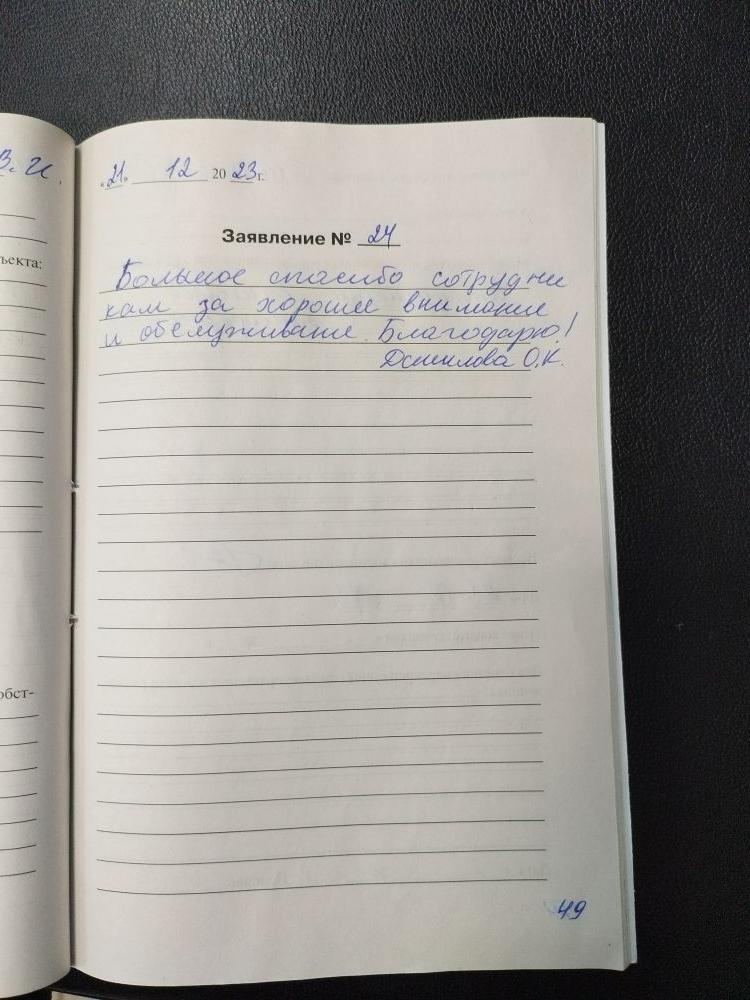 В. И.
ъекта:
обст-
«21» 12 2023 г.
Заявление № 24
Большое спасибо сотрудни
кам за хорошее внимание
и обслуживание. Благодарю!
О.К.
49